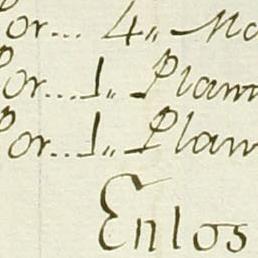 Por... 4,, Ma
Por... 1,, Plan
Por... 1,, Plan
Enlos